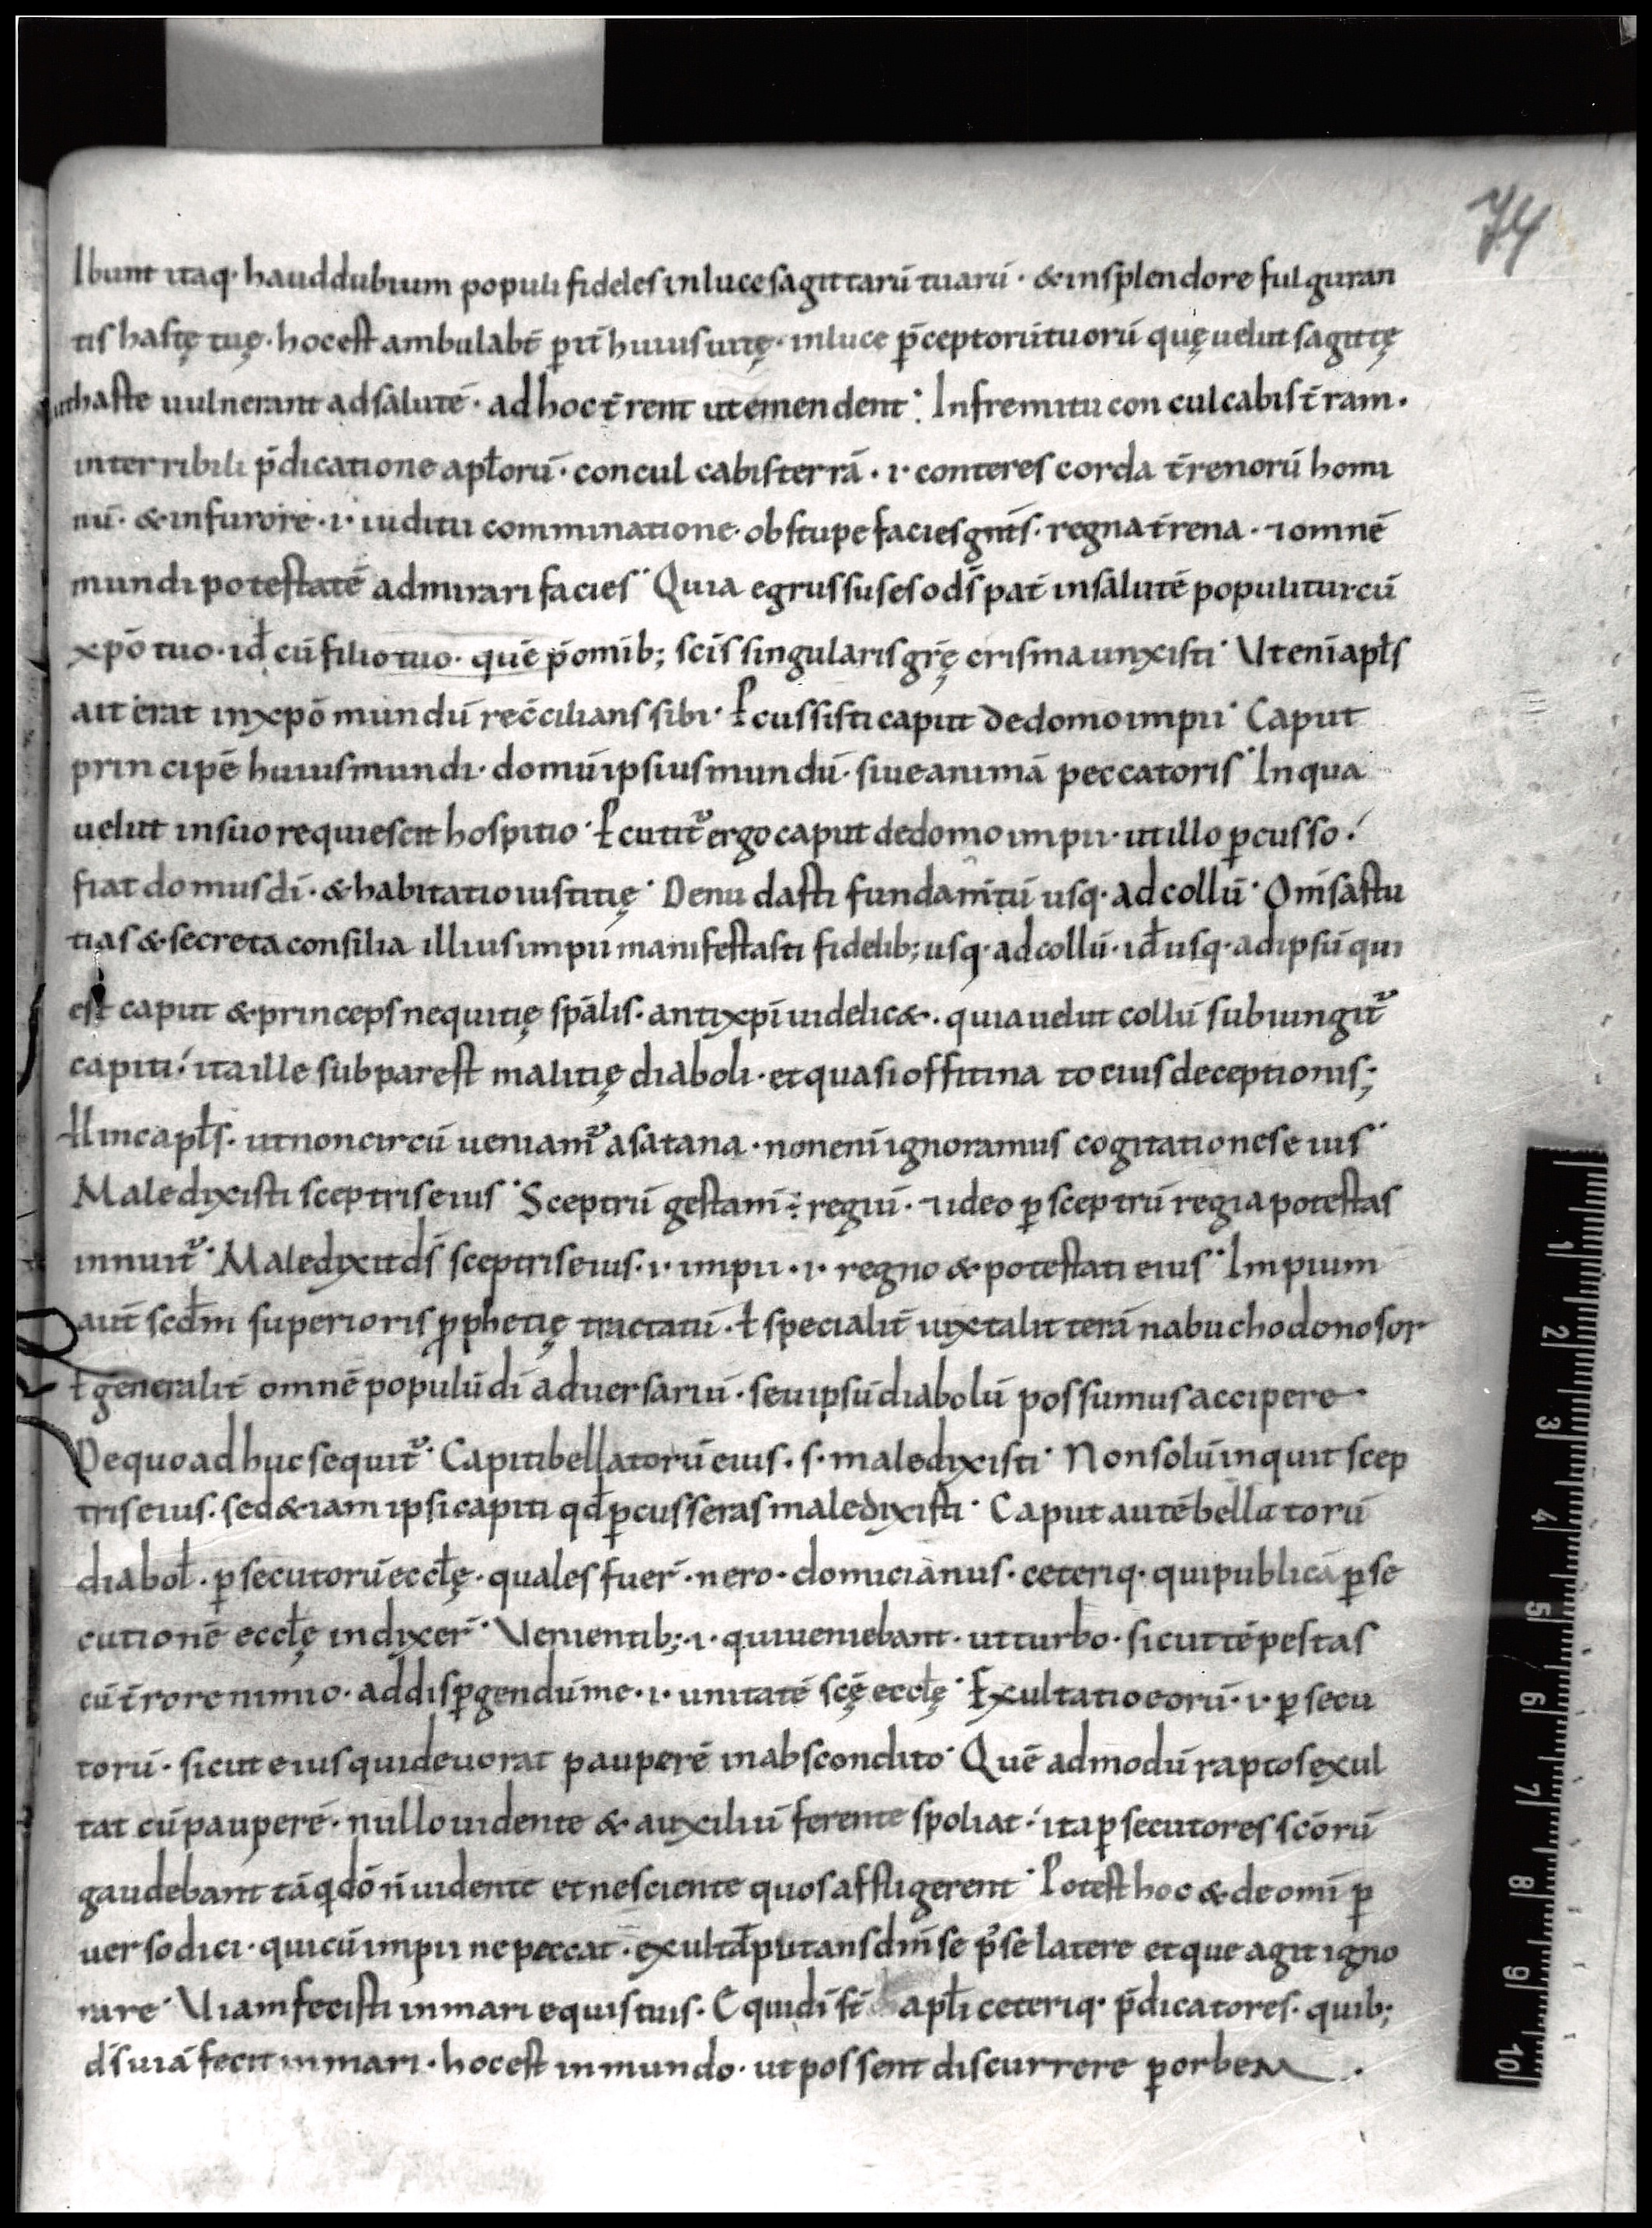 74
Ibunt itaq· haud dubium populi fideles in luce sagittarū tuarū · & in splendore fulguran
tis hastę tuę · hoc est ambulabt̄ p̱ itī huius uitę · in luce p̄ceptorū tuorū quę uelut sagittę
ut haste uulnerant ad salutē · ad hoc t̄rent ut emendent · In fremitu conculcabis t̄ram ·
in terribili p̄dicatione apl̄orū · conculcabis terrā · i· conteres corda t̄renorū homi
nū · & in furore · i· iuditii comminatione · obstupefacies gnt̄s · regna t̄rena · ⁊ omnē
mundi potestatē admirari facies · Quia egrussus es o ds̄ pat̄ in salutē populi tui cū
xp̄o tuo · id̄ cū filio tuo · quē p̄ omib; sc̄is singularis gr̄ę crisma unxisti · Ut eni apl̄s
ait erat in xp̄o mundū rec̄cilians sibi · P̱cussisti caput de domo impii · Caput
principē huius mundi · domū ipsius mundū · siue animā peccatoris · In qua
uelut in suo requiescit hospitio · P̱cutit᷑ ergo caput de domo impii · ut illo p̱cusso ·
fiat domus dī · & habitatio iustitię · Denudasti fundam̄tū usq· ad collū · Om̄s astu
tias & secreta consilia illius impii manifestasti fidelib; usq· ad collū · id̄ usq· ad ipsū qui
est caput & princeps nequitię sp̄alis · antixp̄i uidelic& · quia uelut collū subiungit᷑
capiti · ita ille subpar est malitię diaboli · et quasi offitina to eius deceptionis ;
Hinc apl̄s · ut non circū ueniam᷑ a satana · non eni ignoramus cogitationes eius ·
Maledixisti sceptris eius · Sceptrū gestam̄ ÷ regiū · ⁊ ideo p̱ sceptrū regia potestas
innuit᷑ · Maledixit ds̄ sceptris eius · i· impii · i· regno & potestati eius · Impium
aut̄ scd̄m superioris p̱phetię tractatū · ł specialit̄ iuxta litterā nabuchodonosor
ł generalit̄ omnē populū dī aduersariū · seu ipsū diabolū possumus accipere ·
De quo adhuc sequit᷑ · Capiti bellatorū eius · s· maledixisti · Non solū inquit scep
tris eius · sed &iam ipsi capiti qd̄ p̱cusseras maledixisti · Caput autē bellatorū
diabol̄ · p̱secutorū eccl̄ę · quales fuer̄ · nero · domicianus · ceteriq· qui publicā p̱se
cutionē eccl̄ę indixer̄ · Uenientib; · i· qui ueniebant · ut turbo · sicut tēpestas
cū t̄rore nimio · ad disp̱gendū me · i· unitatē sc̄ę eccl̄ę · Exultatio eorū · i· p̱secu
torū · sicut eius qui deuorat pauperē in abscondito · Quē admodū raptos exul
tat cū pauperē · nullo uidente & auxiliū ferente spoliat · ita p̱secutores sc̄orū
gaudebant tāq do̅ n̄ uidente et nesciente quos affligerent · Potest hoc & de omi p̱
uerso dici · qui cū impune peccat · exultat putans dm̄ se p̄se latere et que agit igno
rare · Uiam fecisti in mari equis tuis · Equi dī st̄ apl̄i ceteriq· p̄dicatores · quib;
ds̄ uiā fecit in mari · hoc est in mundo · ut possent discurrere p̱ orbem ·
1 2 3 4 5 6 7 8 9 10